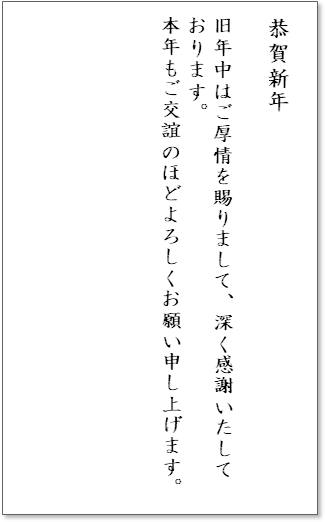 恭賀新年
旧年中はご厚情を賜りまして、深く感謝いたして
おります。
本年もご交誼のほどよろしくお願い申し上げます。